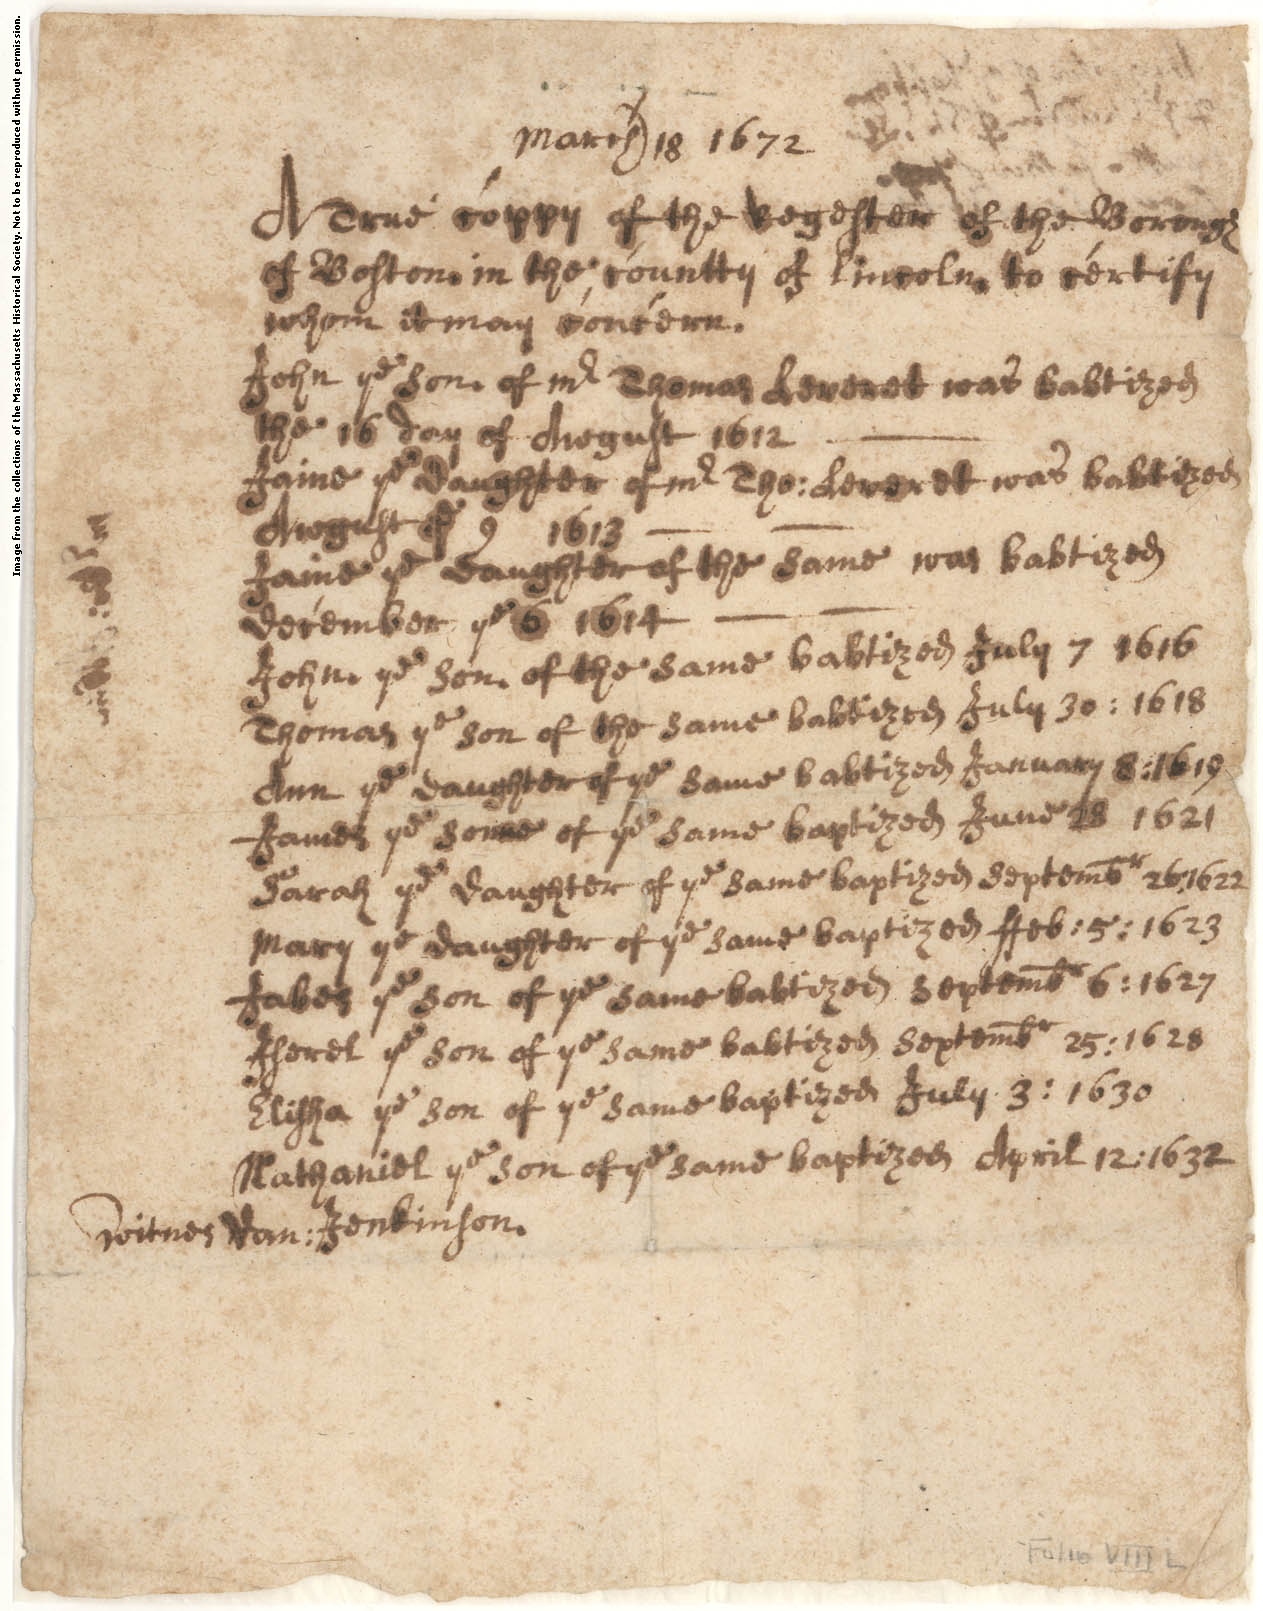 March 18 1672
A True coppy of the Regester of the Borough
of Boston in the countty of Lincoln. to certify
whom it may concern.
John ye son. of mr Thomas Leveret was babtized
the 16 day of August 1612
Jaine ye daughter of mr Tho: Leveret was babtized
August ye 9 1613
Jaine ye daughter of the same was babtized
december ye 6 1614
John. ye son. of the same babtized July 7 1616
Thomas ye son of the same babtized July 30: 1618
Ann ye daughter of ye same babtized January 8:1619
James ye sonne of ye same baptized June 28 1621
Sarah ye daughter of ye same baptized Septembr 26:1622
Mary ye daughter of ye same baptized ffeb: 5: 1623
Jabes ye son of ye same babtized Septembr 6: 1627
Iserel ye son of ye same babtized Septembr 25: 1628
Elisha ye son of ye same baptized July 3: 1630
Nathaniel ye son of ye same baptized April 12:1632
Witnes Dan: Jenkinson.
Folio VIII L
Image from the collections of the Massachusetts Historical Society. Not to be reproduced without permission.